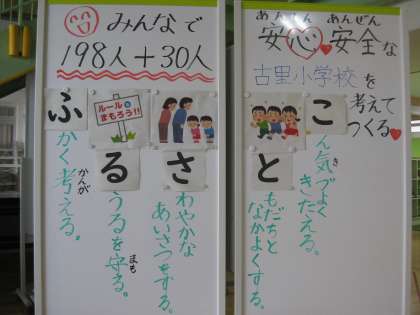 みんなで
198人+30人
ふかく考える。
かんが
ルールを
まもろう!!
るうるを守る。
まも
さわやかな
あいさつをする。
あんしんあんぜん
安心安全な
古里小学校を
考えて
つくる
ともだちと
なかよくする。
こん気づよく
き
きたえる。